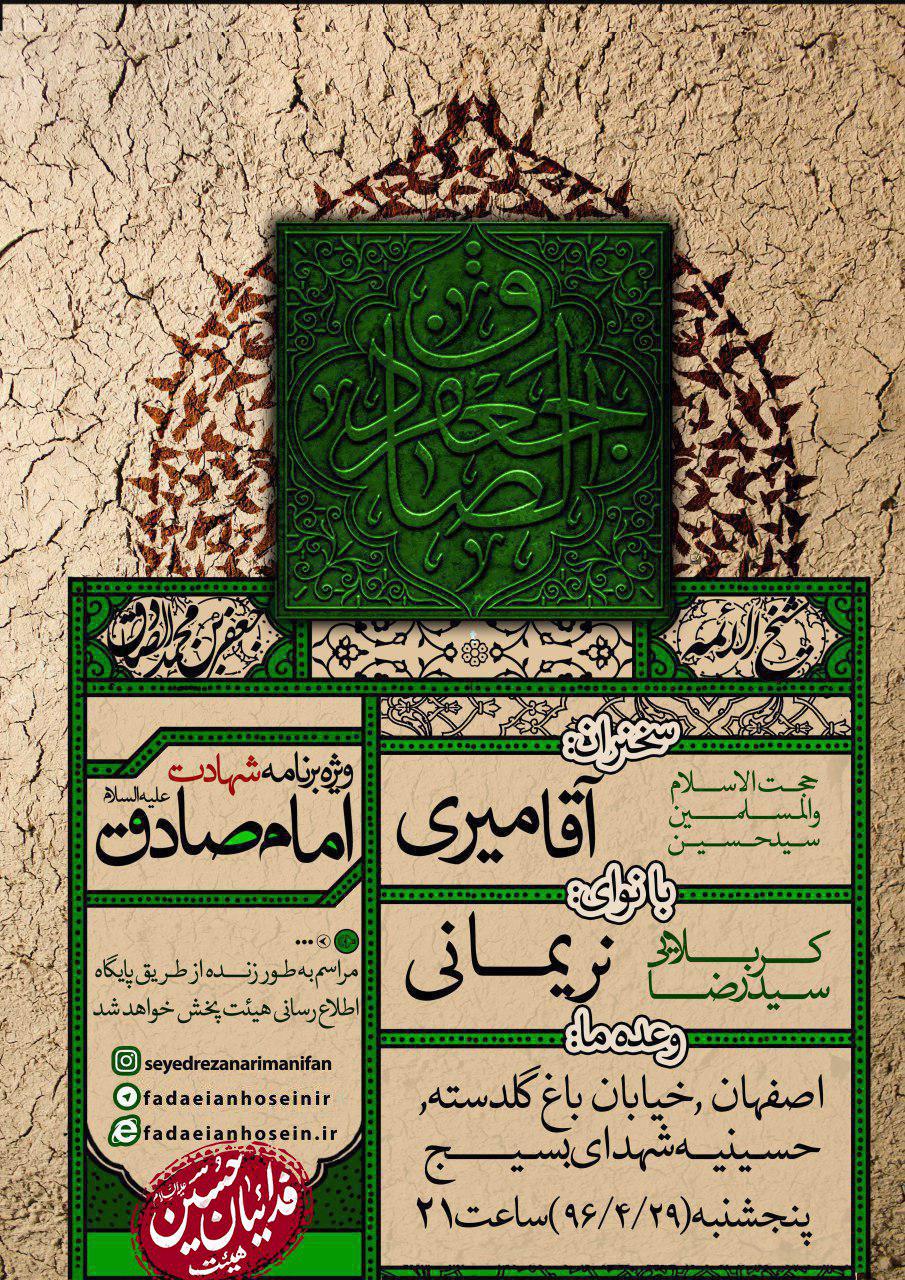 جعفر الصادق
شیخ الائمه
جعفر بن محمد الصادق
سخنران:
حجت الاسلام
والمسلمین
سیدحسین
آقامیری
بانوای:
کربلایی
سیدرضا
نریمانی
وعده ما:
اصفهان ,خیابان باغ گلدسته,
حسینیه شهدای بسیج
پنجشنبه(۹۶/۴/۲۹)ساعت ۲۱
ویژه برنامه شهادت
امام صادق علیه السلام
...
مراسم به طور زنده از طریق پایگاه
اطلاع رسانی هیئت پخش خواهد شد
seyedrezanarimanifan
fadaeianhoseinir
fadaeianhosein.ir
فدائیان حسین
هیئت